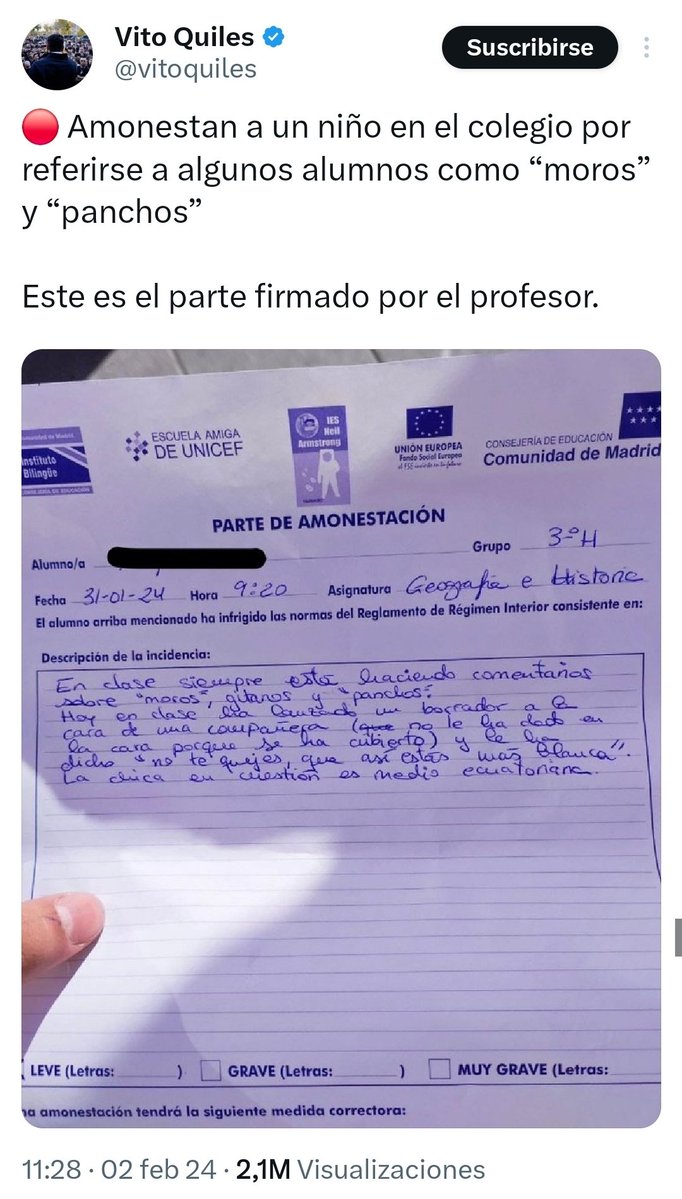 Vito Quiles
@vitoquiles
Suscribirse
🔴 Amonestan a un niño en el colegio por
referirse a algunos alumnos como “moros”
y “panchos”
Este es el parte firmado por el profesor.
Comunidad de Madrid
Instituto
Bilingüe
CONSEJERÍA DE EDUCACIÓN
ESCUELA AMIGA
DE UNICEF
IES
Neil
Armstrong
UNIÓN EUROPEA
Fondo Social Europeo
el FSE invierte en tu futuro
CONSEJERÍA DE EDUCACIÓN
Comunidad de Madrid
PARTE DE AMONESTACIÓN
Alumno/a
Grupo 3ºH
Fecha 31-01-24 Hora 9:20 Asignatura Geografía e Historia
El alumno arriba mencionado ha infrigido las normas del Reglamento de Régimen Interior consistente en:
Descripción de la incidencia:
En clase siempre está haciendo comentarios
sobre "moros", gitanos y "panchos".
Hoy en clase ha lanzado un borrador a la
cara de una compañera (que no le ha dado en
la cara porque se ha cubierto) y le ha
dicho "no te quejes, que así estás más blanca".
La chica en cuestión es medio ecuatoriana.
LEVE (Letras: ) GRAVE (Letras: ) MUY GRAVE (Letras:
a amonestación tendrá la siguiente medida correctora:
11:28 · 02 feb 24 · 2,1M Visualizaciones